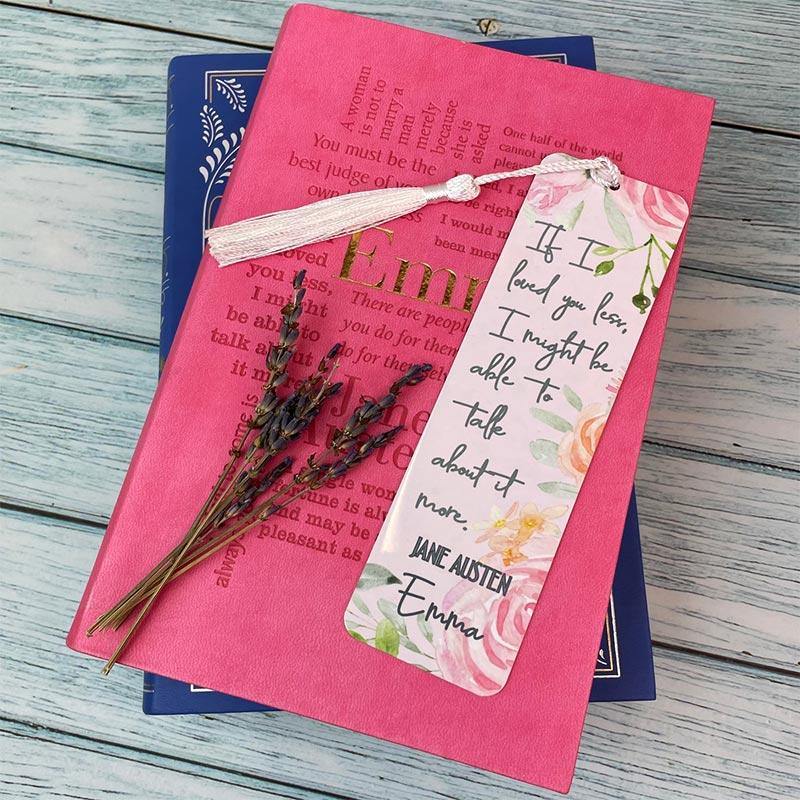 A woman
is not to
marry a
man
merely
because
she is
asked
You must be the
best judge of
own
One half of the world
cannot
I would
been
loved
you less,
I might
be able to
talk about
it
There are people
you do for them
do for
Emm
Jane
and may be
fortune is
always
pleasant as
If I
loved you less,
I might be
able to
talk
about it
more.
JANE AUSTEN
Emma